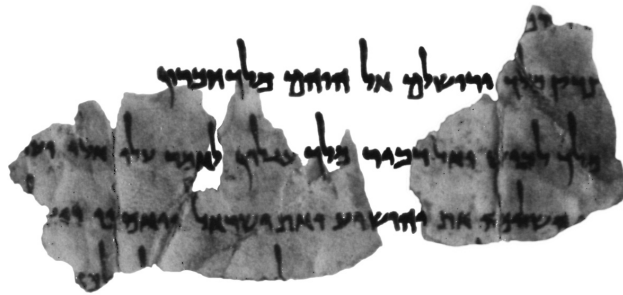 צדק מלך ירושלם אל הוהם מלך חברון
מלך לכיש ואל דביר מלך עגלון לאמר עלו אלי
השלמה את יהושע ואת ישראל ויאספו